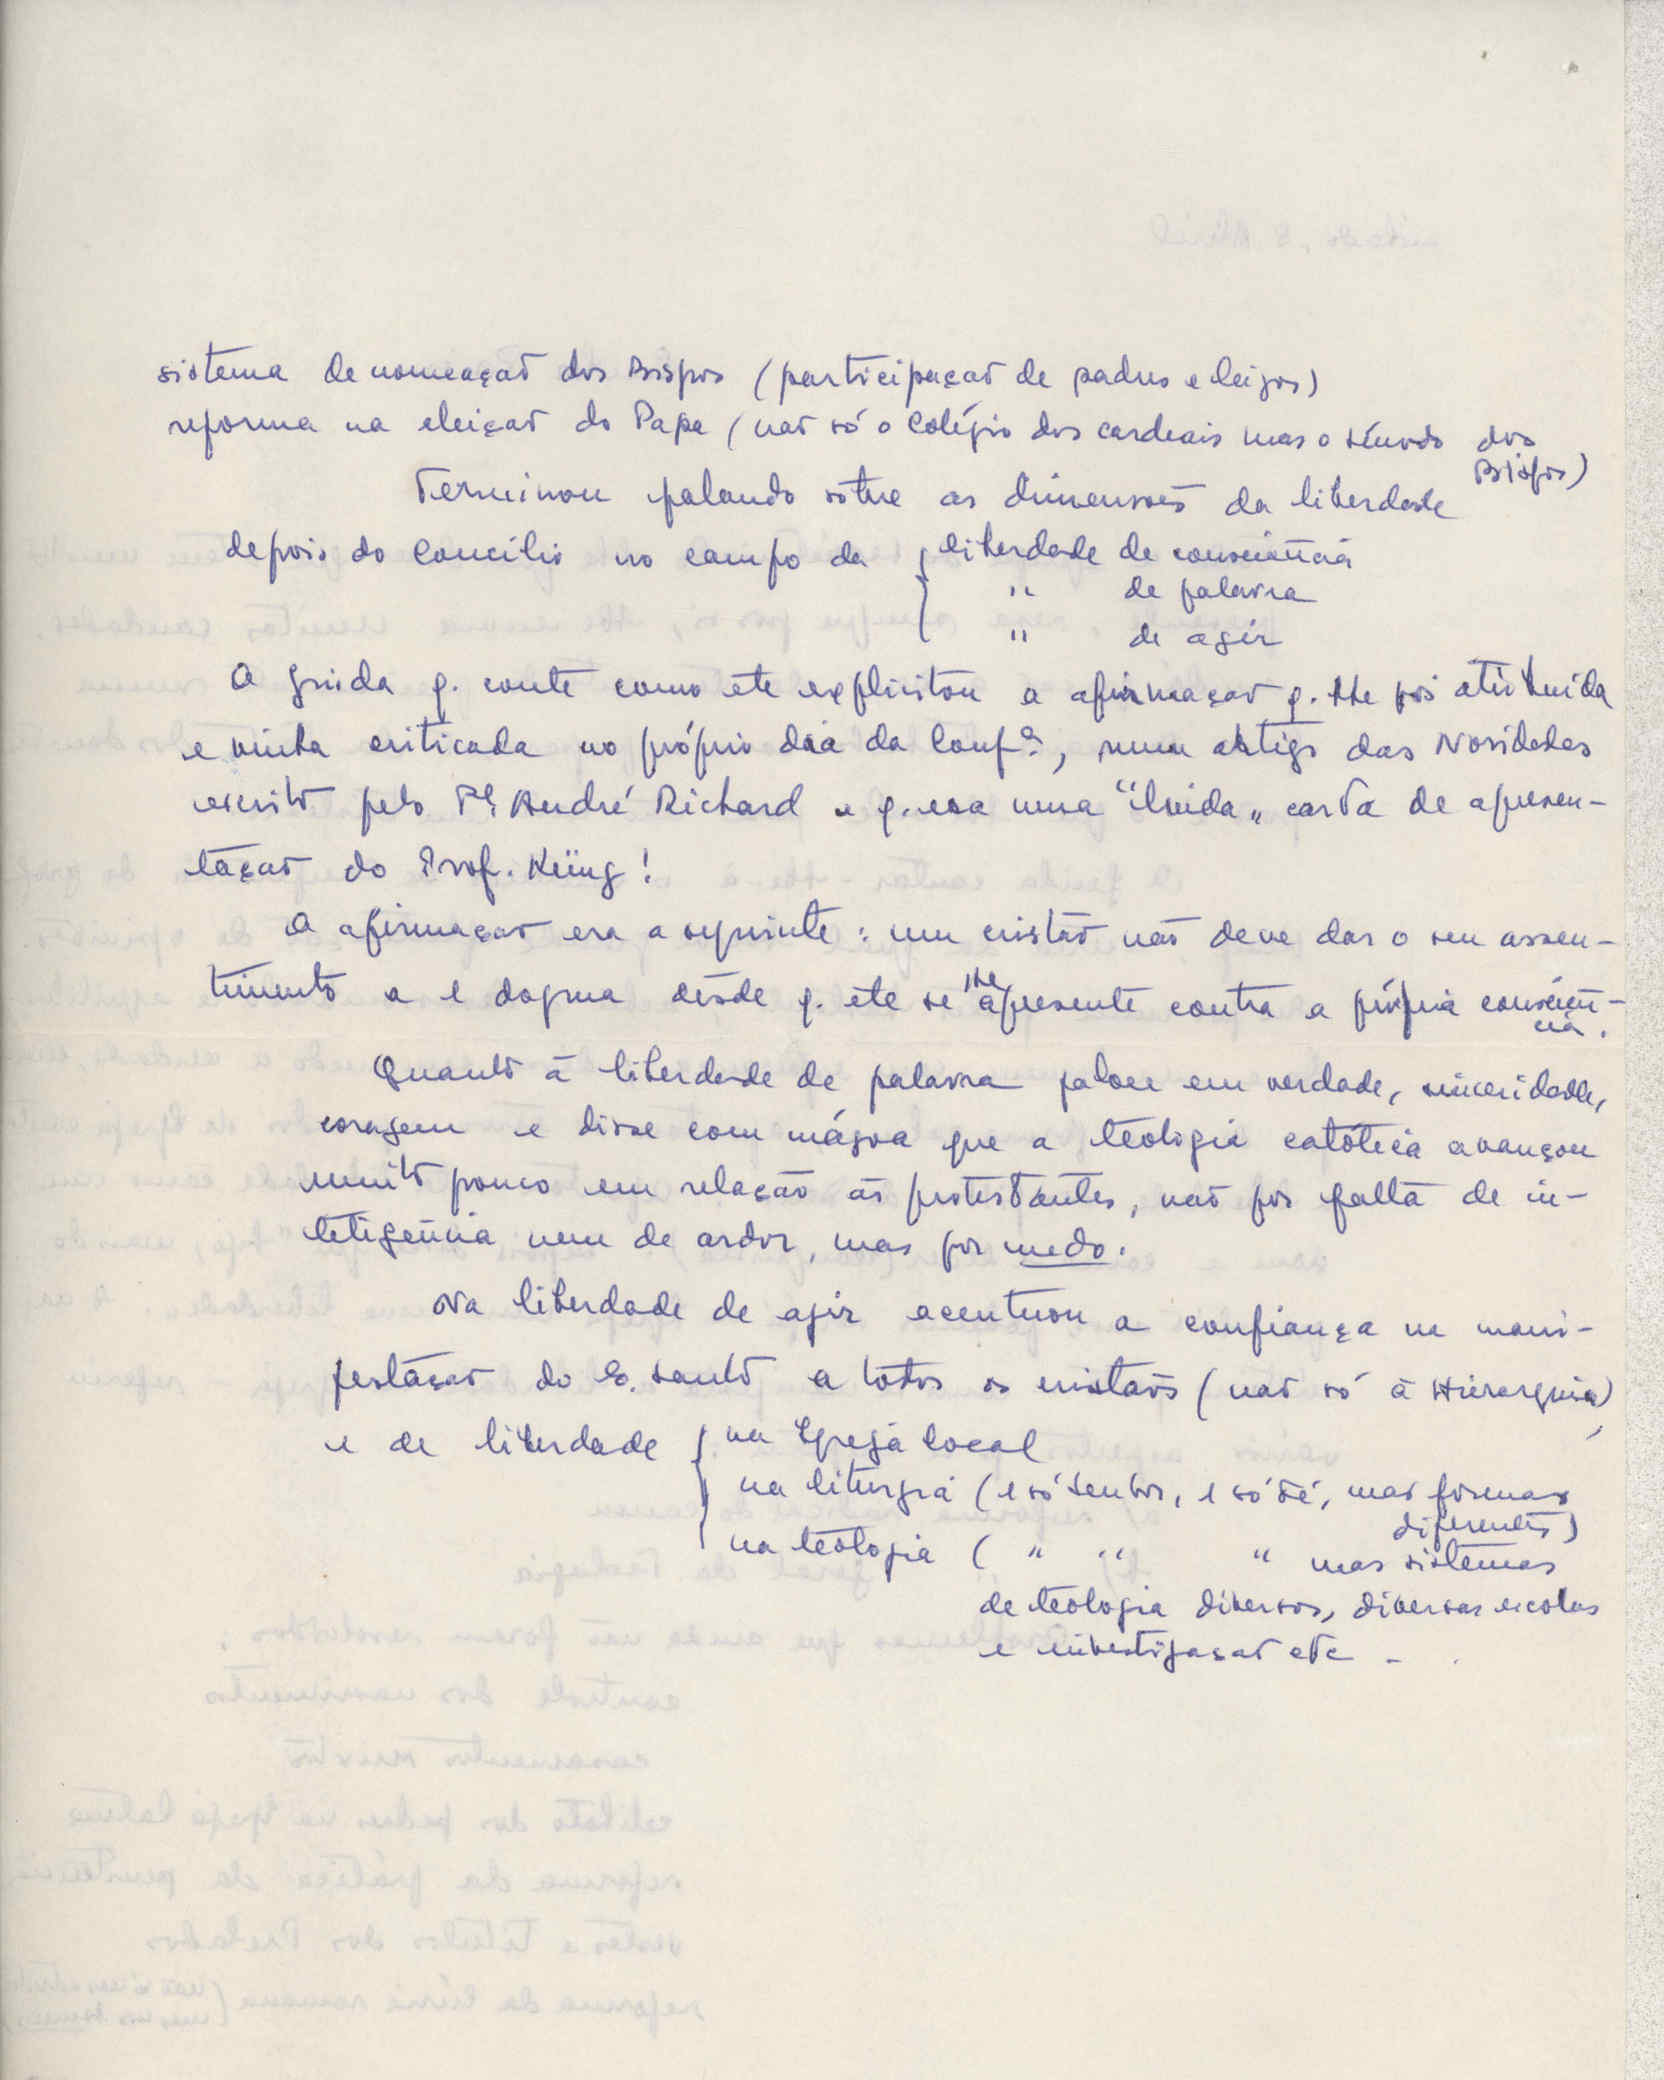 sistema de nomeação dos Bispos (participação de padres e leigos)
reforma na eleição do Papa (não só o Colégio dos cardeais mas o sínodo dos
Bispos)
Terminou falando sobre as dimensões da liberdade
depois do Concílio no campo da { liberdade de consciência
" de palavra
" de agir
A Guida q. conte como ele explicitou a afirmação q. lhe foi atribuida
e vinha criticada no próprio dia da Confª, num artigo das Novidades
escrito pelo Pe André Richard e q. era uma "linda" carta de apresen-
tação do Prof. Küng!
A afirmação era a seguinte: um cristão não deve dar o seu assen-
timento a 1 dogma desde q. ele se lhe apresente contra a própria consciên-
cia.
Quanto à liberdade de palavra falou em verdade, sinceridade,
coragem e disse com mágoa que a teologia católica avançou
muito pouco em relação às protestantes, não por falta de in-
teligência nem de ardor, mas por medo.
Na liberdade de agir acentuou a confiança na mani-
festação do E. Santo a todos os cristãos (não só à Hierarquia)
e de liberdade { na Igreja local
na liturgia (1 só Senhor, 1 só Fé, mas formas
diferentes)
na teologia ( " " " mas sistemas
de teologia diversos, diversas escolas
e investigação etc -